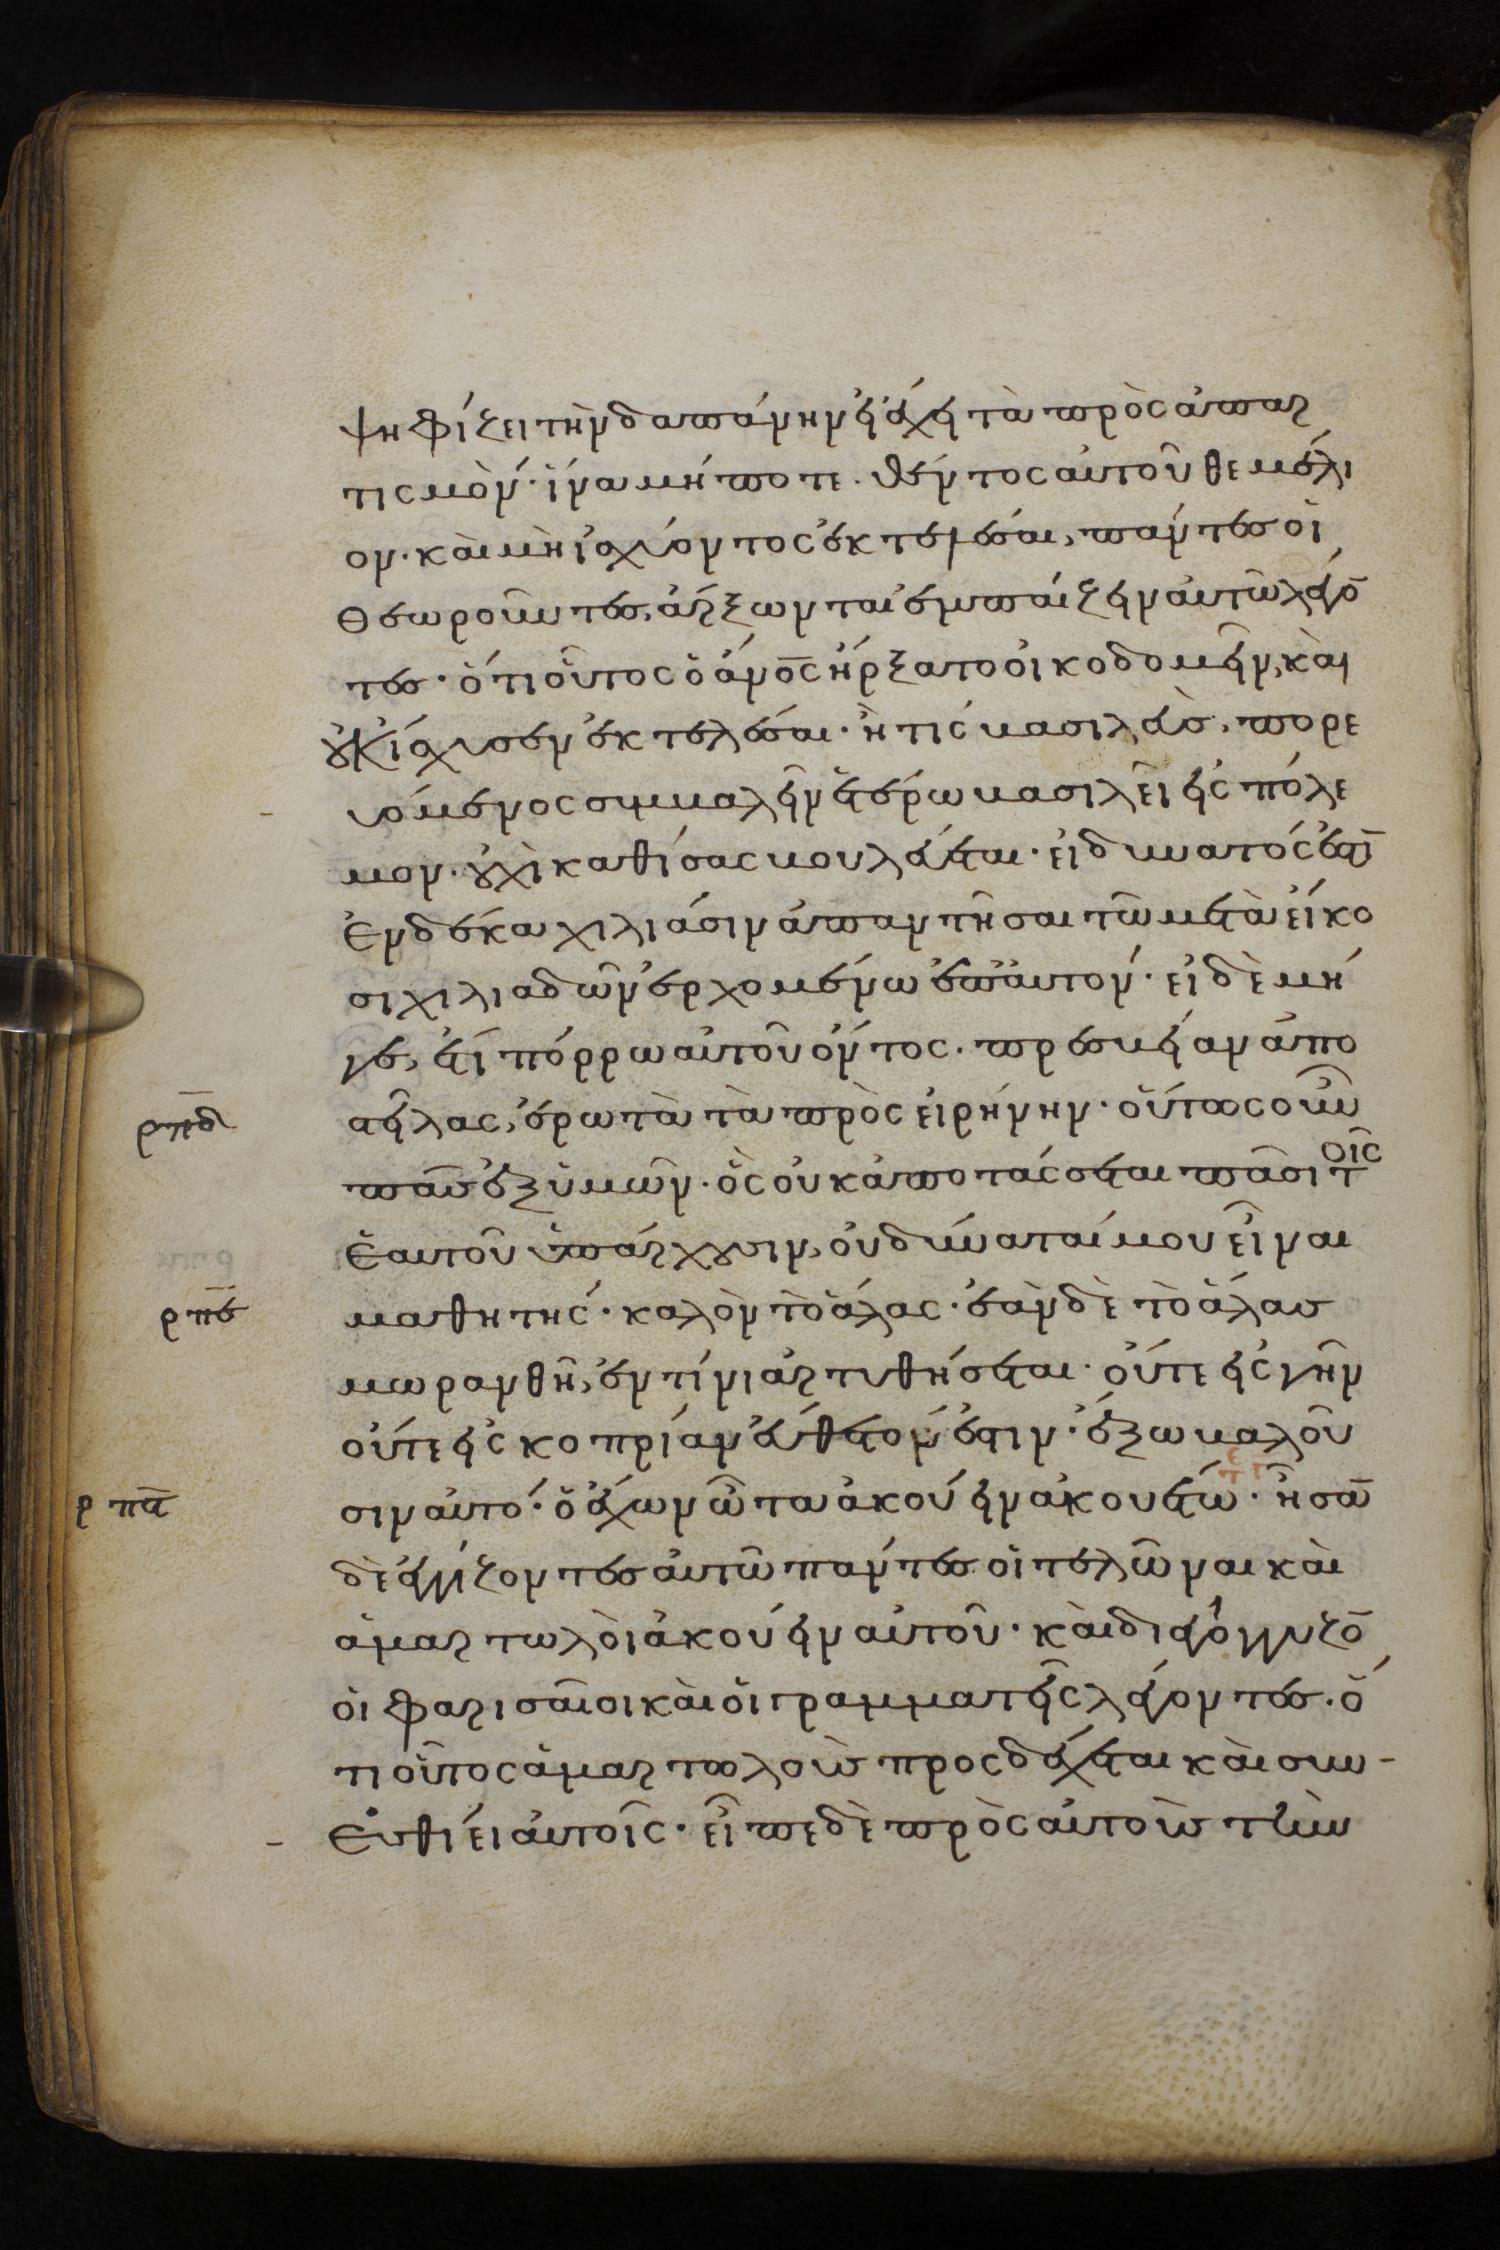 ψηφίζει τὴν δαπάνην εἰ ἔχει τὰ πρὸς ἀπαρ
τισμόν· ἵνα μήποτε. θέντος αὐτοῦ θεμέλι
ον· καὶ μὴ ἰσχύοντος ἐκτελέσαι, πάντες οἱ
θεωροῦντες, ἄρξωνται ἐμπαίζειν αὐτῶ λέγο̅
τες· ὅτι οὗτος ὁ ἄν̅ο̅ς̅ ἤρξατο οἰκοδομεῖν, καὶ
οὐκ ἴσχυσεν ἐκτελέσαι· ἢ τίς βασιλεὺς, πορε
υόμενος συμβαλεῖν ἑτέρω βασιλεῖ εἰς πόλε
μον· οὐχὶ καθίσας βουλεύεται· εἰ δυνατός ἐστι̅
ἐν δέκα χιλιάσιν ἀπαντῆσαι τῶ μετὰ εἴκο
σι χιλιάδων ἐρχομένω ἐπ' αὐτόν· εἰ δὲ μή
γε, ἔτι πόρρω αὐτοῦ ὄντος· πρεσβείαν ἀπο
στείλας, ἐρωτᾶ τὰ πρὸς εἰρήνην· οὕτως οὖν
ρπδ
πᾶς ἐξ ὑμῶν· ὃς οὐκ ἀποτάσσεται πᾶσι τοῖς
ἑαυτοῦ ὑπάρχουσιν, οὐ δύναταί μου εἶναι
μαθητής· καλὸν τὸ ἅλας· ἐὰν δὲ τὸ ἅλας
ρπε
μωρανθῆ, ἐν τίνι ἀρτυθήσεται· οὔτε εἰς γῆν
οὔτε εἰς κοπρίαν εὔθετόν ἐστιν· ἔξω βάλλου
σιν αὐτό· ὁ ἔχων ὦτα ἀκούειν ἀκουέτω· ἦσα̅
ρπϛ
δὲ ἐγγίζοντες αὐτῶ πάντες οἱ τελῶναι καὶ
ἁμαρτωλοὶ ἀκούειν αὐτοῦ· καὶ διεγόγγυζο̅
οἱ φαρισαῖοι καὶ οἱ γραμματεῖς λέγοντες· ὅ
τι οὗτος ἁμαρτωλοὺς προσδέχεται καὶ συν
εσθίει αὐτοῖς· εἶπε δὲ πρὸς αὐτοὺς τὴν